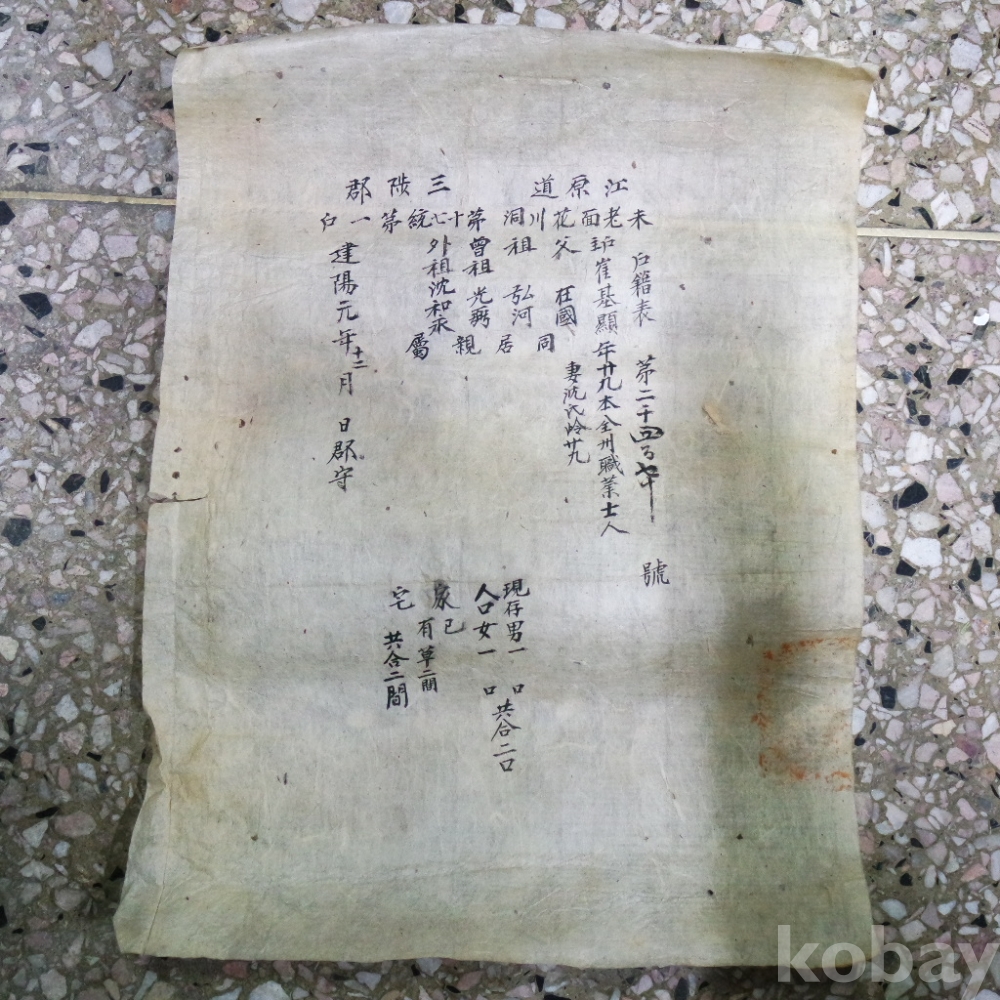 江原道三陟郡
未老面花川洞第十七統第一戶
戶籍表 第二千四百 號
主崔基顯 年卄九 本全州 職業士人
父 在國
祖 弘河
曾祖 光弼
外祖沈和永
同居親屬
妻沈氏齡卄九
建陽元年十二月 日郡守
現存男一 口
人口女一 口
共合二口
家宅
己有草二間
共合二間
kobay